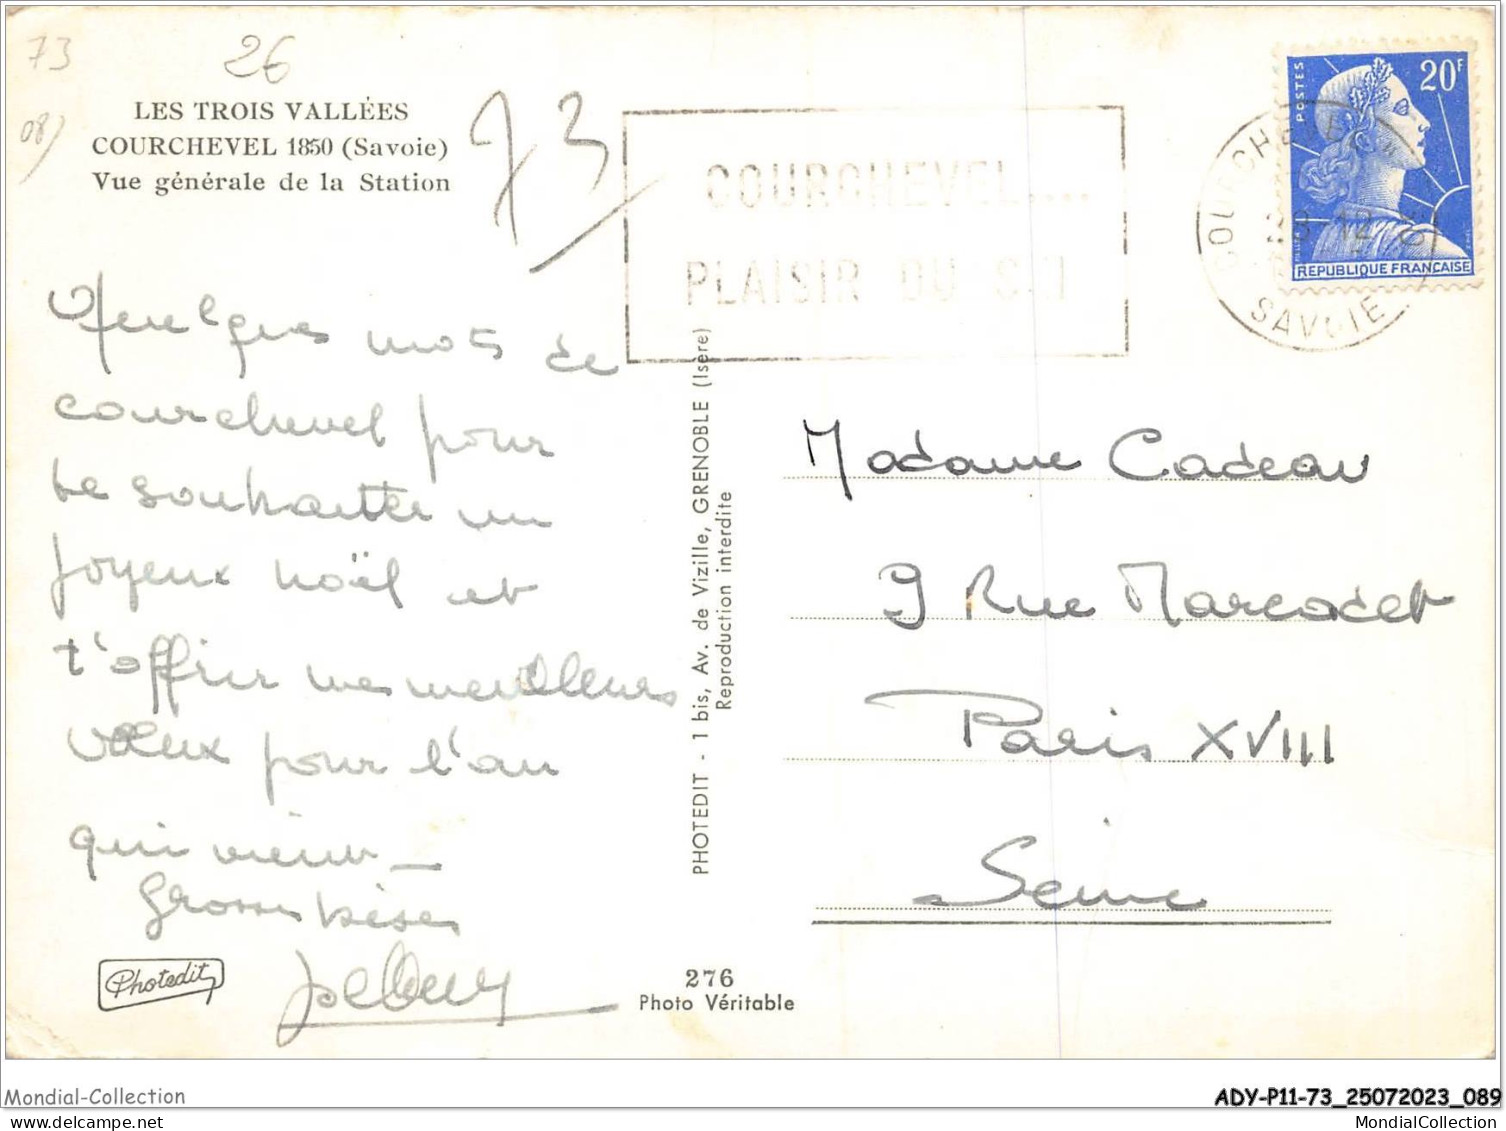 73
26
08)
LES TROIS VALLÉES
COURCHEVEL 1850 (Savoie)
Vue générale de la Station
73
COURCHEVEL....
PLAISIR DU SKI
POSTES
20F
REPUBLIQUE FRANÇAISE
COURCHEVEL
12
SAVOIE
Quelques mots de
courchevel pour
te souhaiter un
joyeux noël et
t'offrir mes meilleurs
vœux pour l'an
qui vient _
Grosses bises
PHOTEDIT - 1 bis, Av. de Vizille, GRENOBLE (Isère)
Reproduction interdite
Madame Cadeau
9 Rue Marcadet
Paris XVIII
Seine
Photedit
276
Photo Véritable
Mondial-Collection
ADY-P11-73_25072023_089
www.delcampe.net
MondialCollection